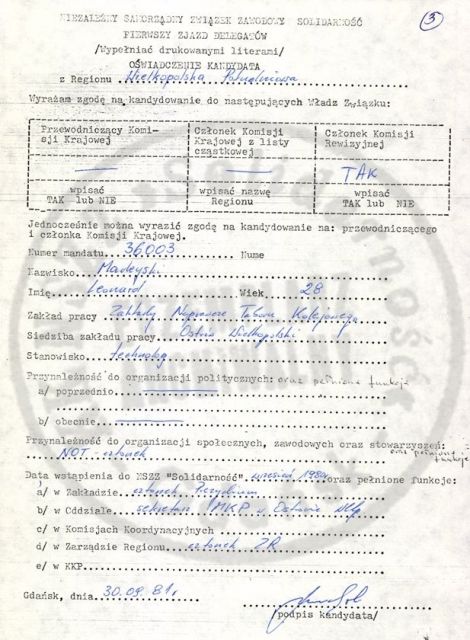 3
NIEZALEŻNY SAMORZĄDNY ZWIĄZEK ZAWODOWY SOLIDARNOŚĆ
PIERWSZY ZJAZD DELEGATÓW
/Wypełniać drukowanymi literami/
OŚWIADCZENIE KANDYDATA
z Regionu Wielkopolska Południowa
Wyrażam zgodę na kandydowanie do następujących Władz Związku:
Przewodniczący Komisji Krajowej
Członek Komisji Krajowej z listy cząstkowej
Członek Komisji Rewizyjnej
— — TAK
wpisać TAK lub NIE
wpisać nazwę Regionu
wpisać TAK lub NIE
Jednocześnie można wyrazić zgodę na kandydowanie na: przewodniczącego
i członka Komisji Krajowej.
Numer mandatu 36003 Nume
Nazwisko Madeyski
Imię Leonard Wiek 28
Zakład pracy Zakłady Naprawcze Taboru Kolejowego
Siedziba zakładu pracy Ostrów Wielkopolski
Stanowisko technolog
Przynależność do organizacji politycznych: oraz pełnione funkcje
a/ poprzednio —
b/ obecnie —
Przynależność do organizacji społecznych, zawodowych oraz stowarzyszeń: oraz pełnione funkcje
NOT - członek
Data wstąpienia do NSZZ "Solidarność" wrzesień 1980 oraz pełnione funkcje:
a/ w Zakładzie członek Prezydium
b/ w Oddziale sekretarz MKP w Ostrowie Wlkp
c/ w Komisjach Koordynacyjnych
d/ w Zarządzie Regionu członek ZR
e/ w KKP
Gdańsk, dnia 30.09.81r.
/podpis kandydata/